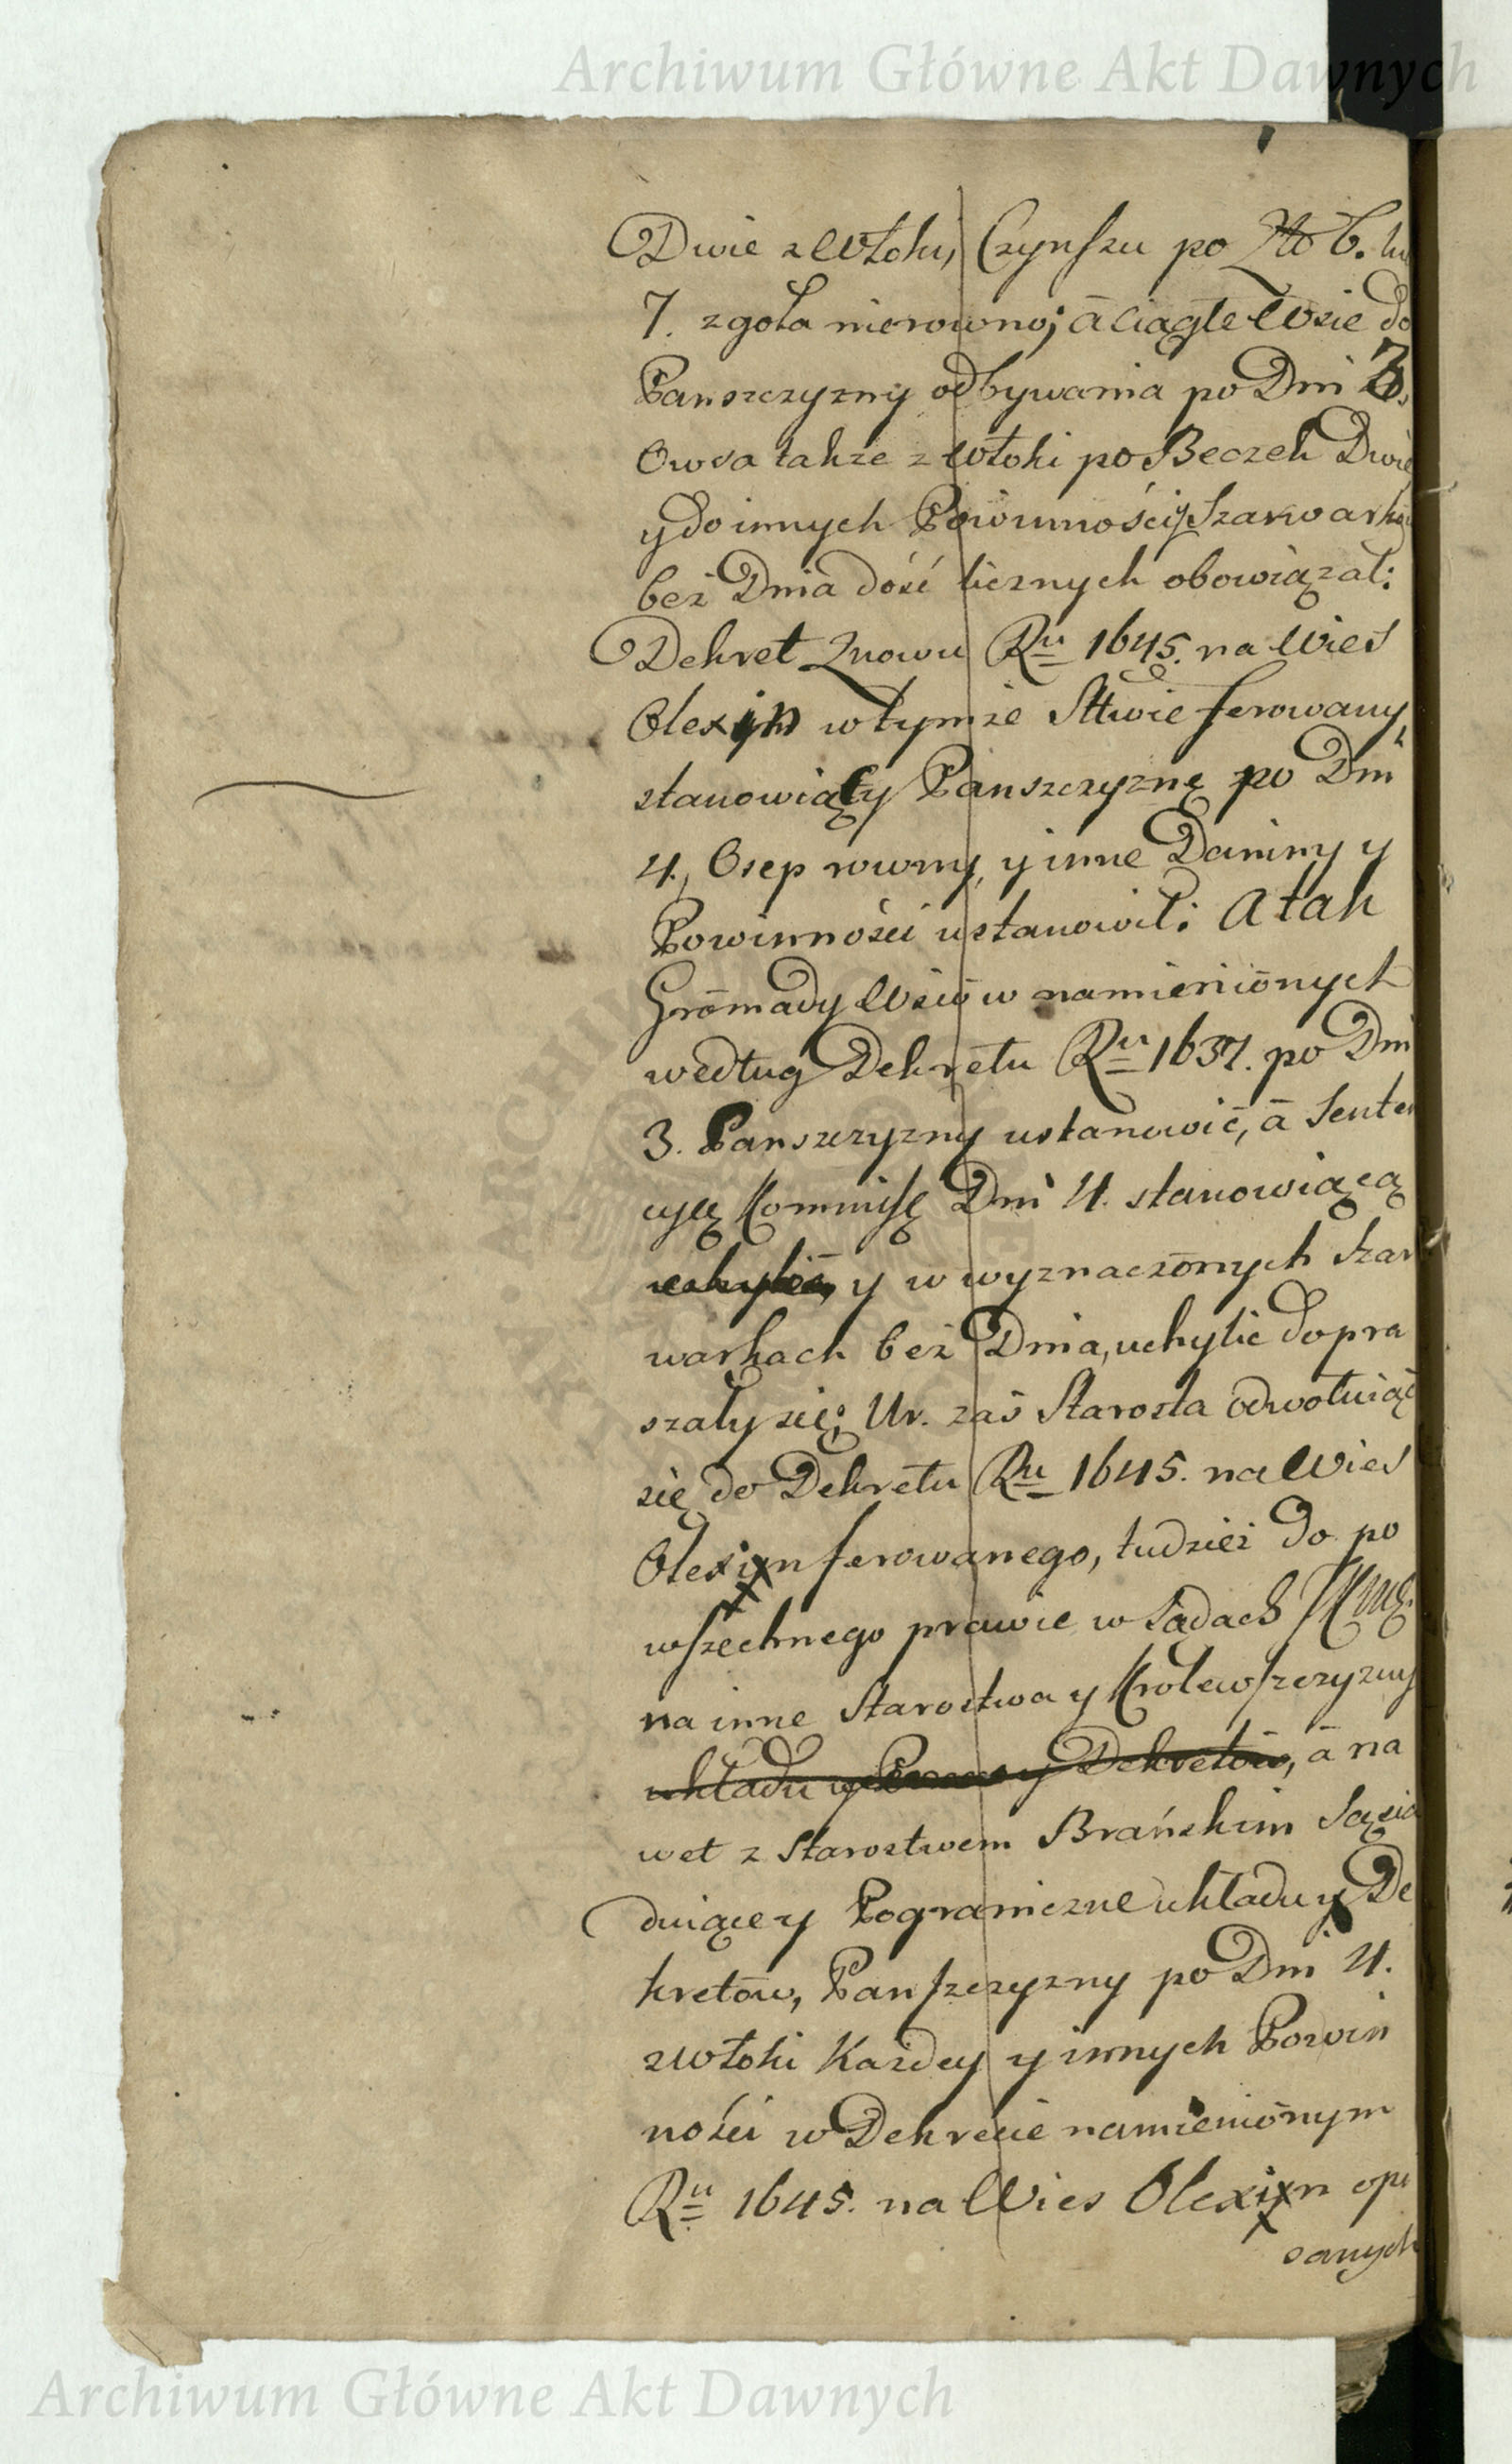 Archiwum Główne Akt Dawnych
Dwie z Włoki, Czynszu po Zło 6. lu
7. zgoła nierowno; ā ciągłe Wsie do
Panszczyzny odbywania po Dni 3.
Owsa takze z Włoki po Beczek Dwie
y do innych Powinności y Szarwarkow
bez Dnia dość licznych obowiązał:
Dekret Znowu Ru 1645. na Wies
Olexin w tymze Sttwie ferowany,
stanowiący Panszczyznę po Dni
4., Osep rowny, y inne Daniny y
Powinności ustanowił: A tak
Grōmady Wsiōw namieniōnych
według Dekretu Ru 1637. po Dni
3. Panszczyzny ustanowić, ā Senten
cyą Kommissę Dni 4. stanowiącą
uchylić, y w wyznaczōnych Szar
warkach bez Dnia, uchylic dopra
szały się; Ur. zaś Starosta odwołuiąc
się do Dekretu Ru 1645. na Wies
Olexin ferowanego, tudziez do po
wszechnego prawie w Sądach
na inne Starostwa y Krolewszczyzny
układu y Dekretōw, ā na
wet z Starostwem Brańskim Sąsia
duiącey Pograniczne układu y De
kretōw, Panszczyzny po Dni 4.
z Włoki Kazdey y innych Powin
ności w Dekrecie namieniōnym
Ru 1645. na Wies Olexin opi
sanych
Archiwum Główne Akt Dawnych